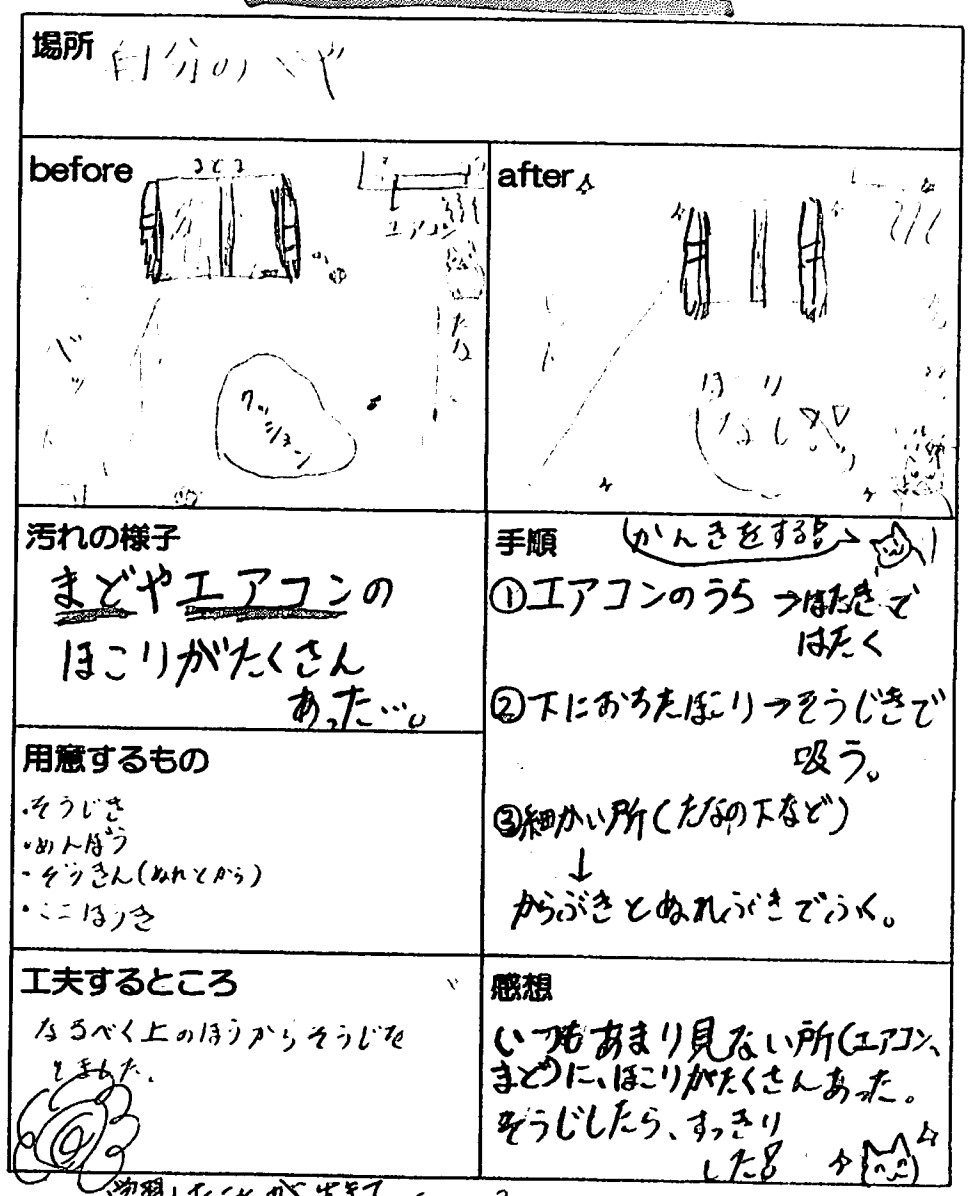 場所
自分のへや
before
まど
エアコン
ベッ
たな
クッション
after
ほこり
なし
汚れの様子
まどやエアコンの
ほこりがたくさん
あった…。
用意するもの
・そうじき
・めんぼう
・ぞうきん(ぬれとから)
・ミニほうき
工夫するところ
なるべく上のほうからそうじを
しました。
手順
かんきをする!
①エアコンのうら→はたきで
はたく
②下におちたほこり→そうじきで
吸う。
③細かい所(たなの下など)
↓
からぶきとぬれぶきでふく。
感想
いつもあまり見ない所(エアコン、
まど)に、ほこりがたくさんあった。
そうじしたら、すっきり
した!